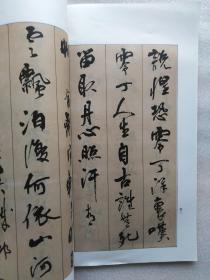 說惶恐零丁洋裏嘆
零丁人生自古誰無死
留取丹心照汗青
雲飄泊復何依山河